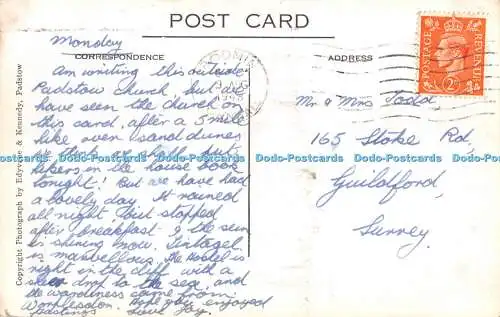 POST CARD
Monday
CORRESPONDENCE
ADDRESS
Am writing this outside
Padstow church, but we
have seen the church on
this card, after a 5 mile
hike over sand dunes
hikers in the house book
tonight! But we have had
a lovely day. It rained
all night but stopped
after breakfast & the sun
is shining now. Tintagel
is marvellous. The Hostel is
right in the cliff with a
sheer drop to the sea, and
the wardness came from
Hope you enjoyed
Hastings Love Joy.
Mr & Mrs Todd
165 Stoke Rd,
Guildford,
Surrey.
POSTAGE
REVENUE
2D
Copyright Photograph by & Kennedy, Padstow
Dodo-Postcards Dodo-Postcards Dodo-Postcards Dodo-Postcards Dodo-Postcards